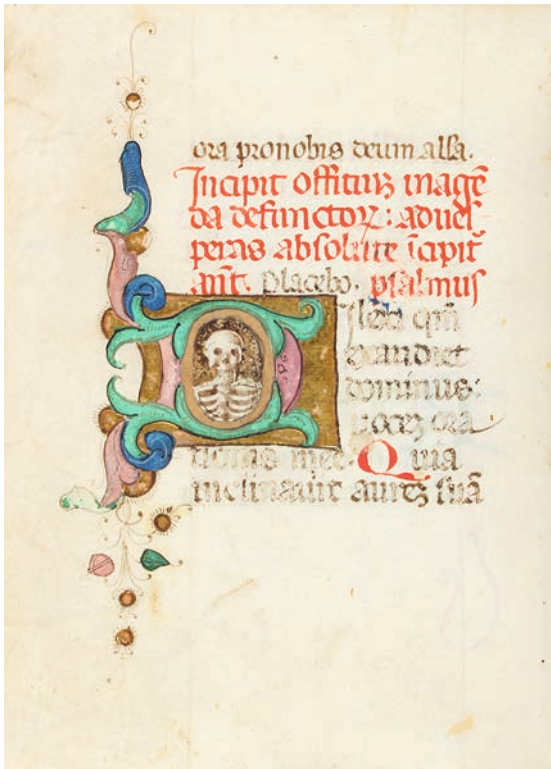 ora pronobis deum alla.
Incipit offitiuz inagẽ
da defunctoꝝ: adues
peras absolute ĩcipit
añt. Placebo. psalmus
Dilexi qm̃
exaudiet
dominus:
vocez ora
tionis mee. Quia
inclinauit aurez suã